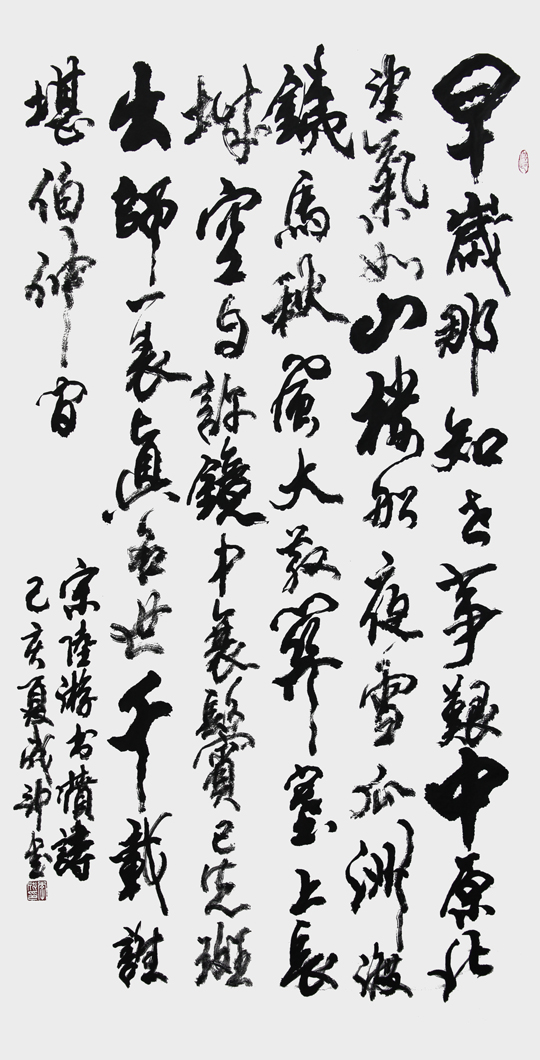 早歲那知世事艱中原北
望氣如山樓船夜雪瓜洲渡
鐵馬秋風大散關塞上長
城空自許鏡中衰鬢已先斑
出師一表真名世千載誰
堪伯仲間
宋陸游書憤詩
己亥夏